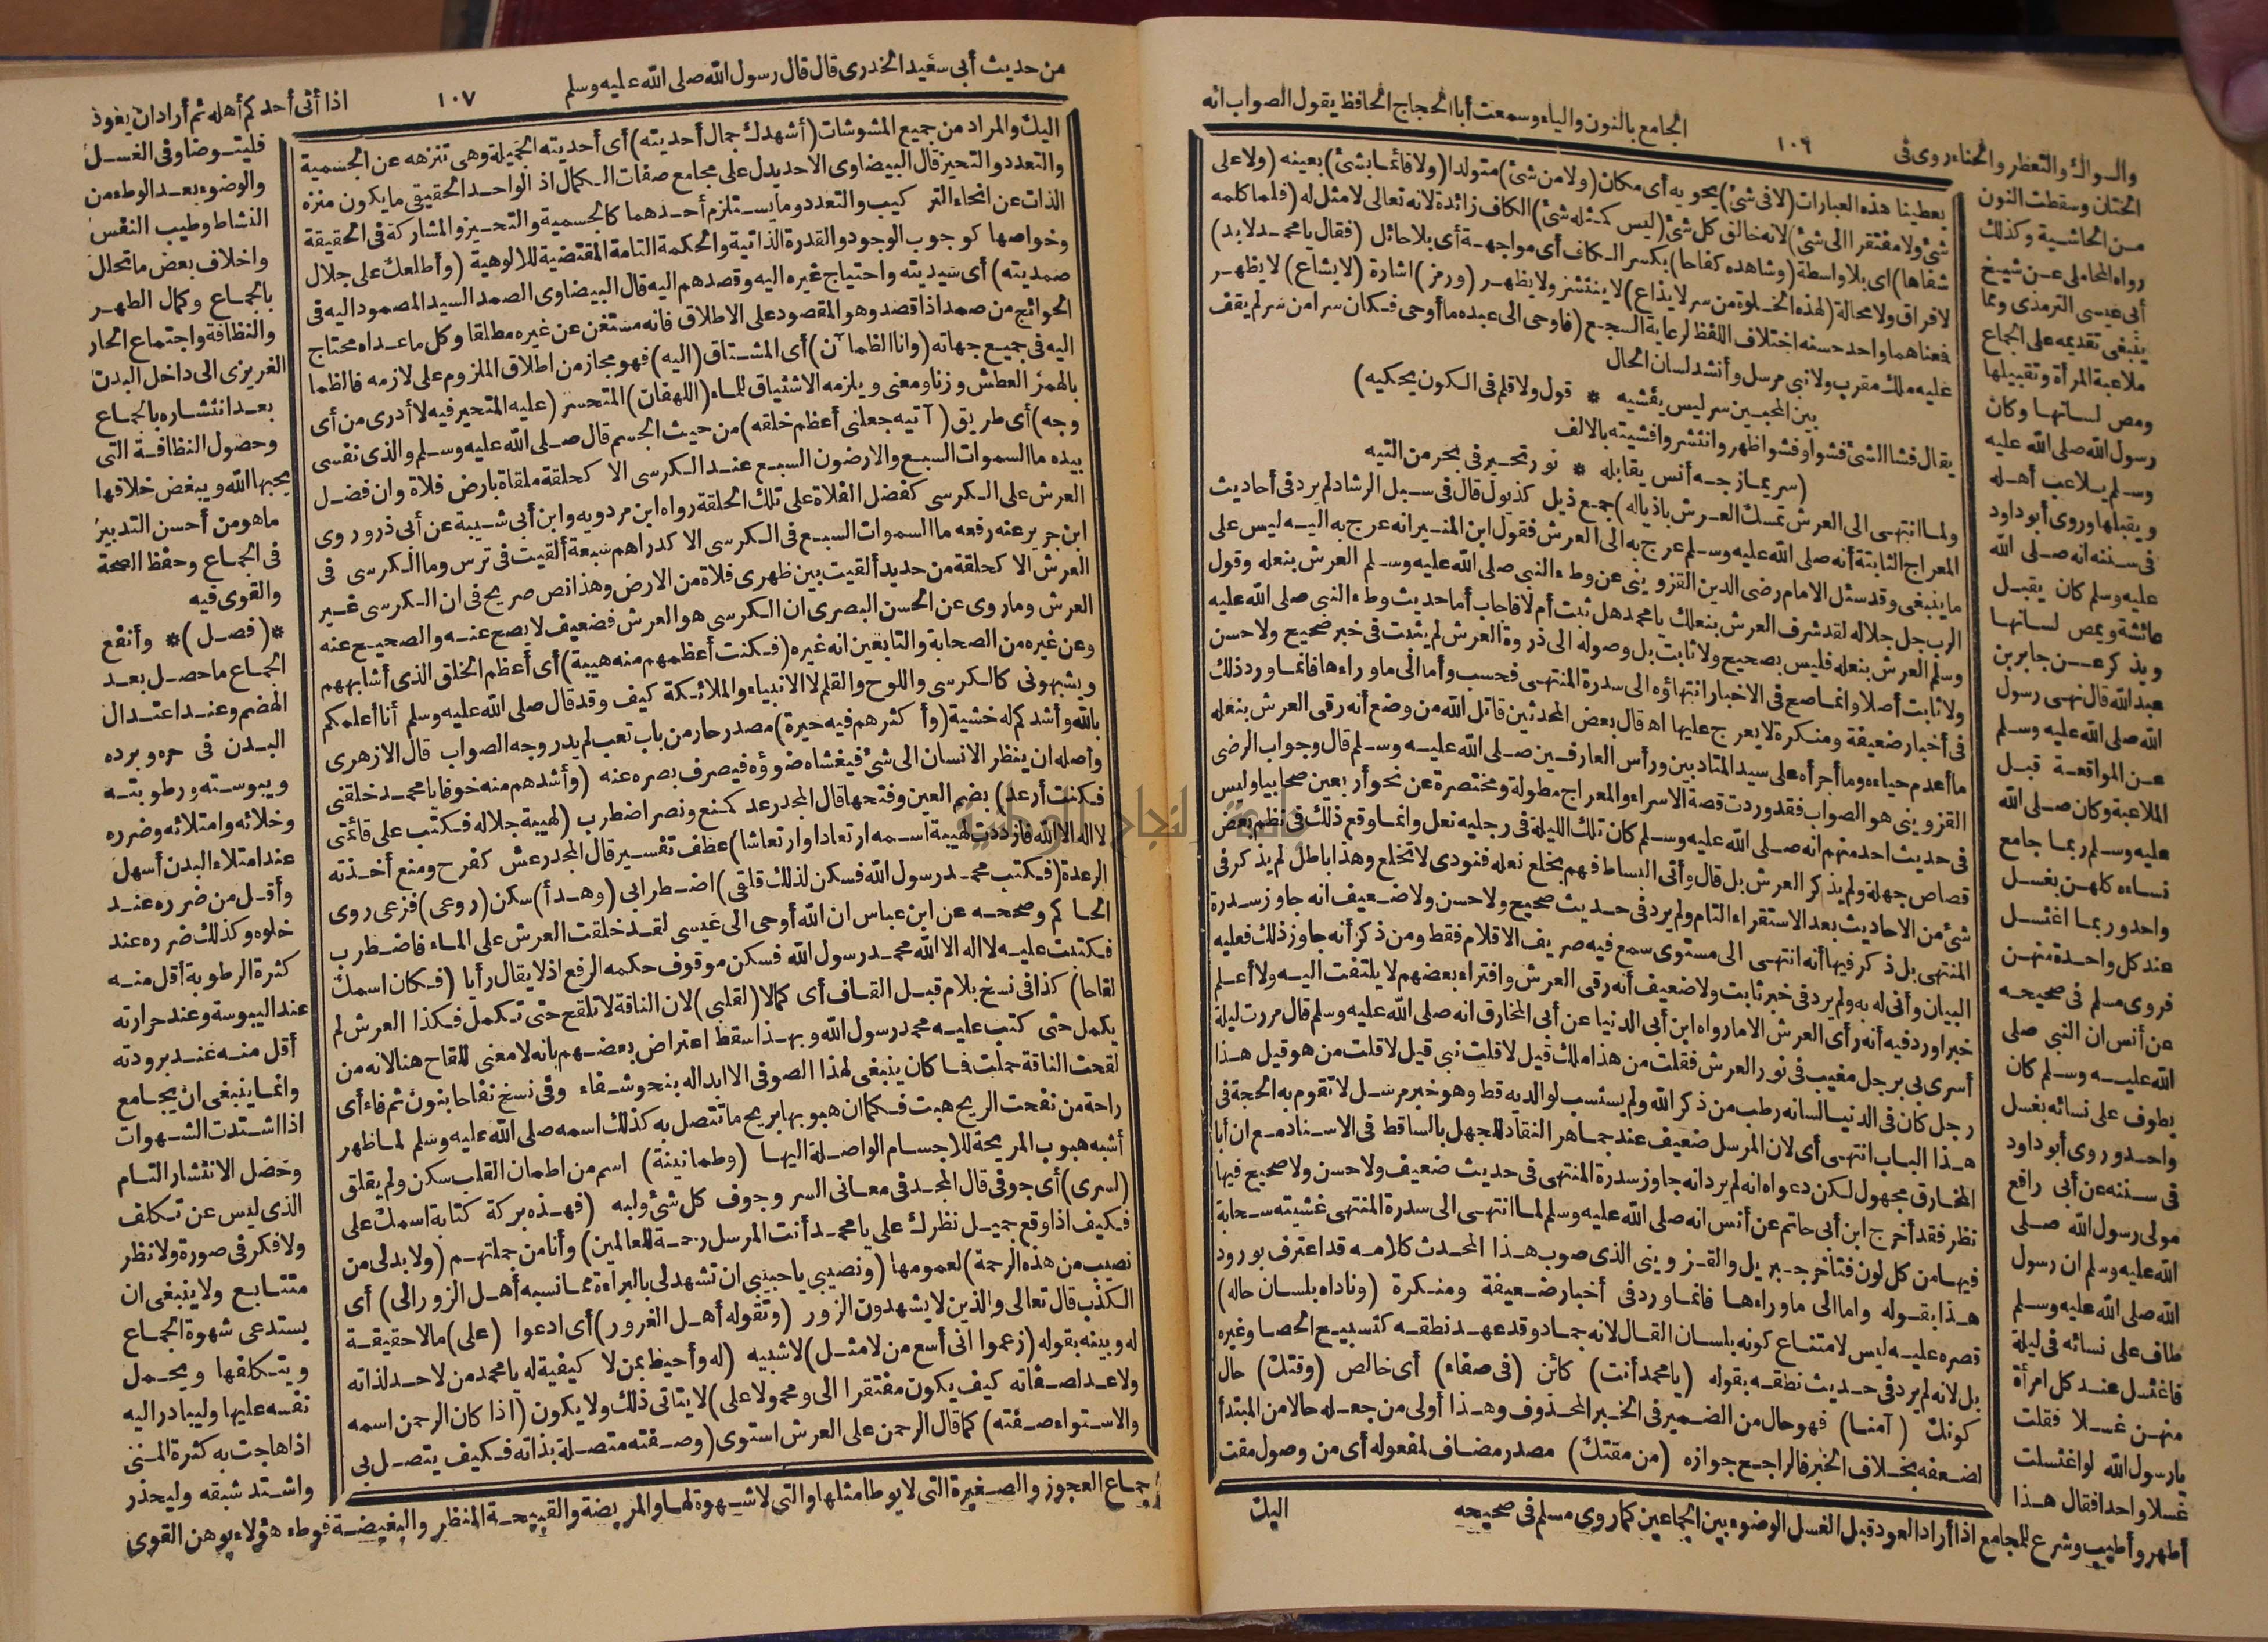 والسواك والتعطر والحناء روى في ١٠٦ الجامع بالنون والياء وسمعت أبا الحجاج الحافظ يقول الصواب انه
الختان وسقطت النون
من الحاشية وكذلك
رواه المحاملي عن شيخ
أبي عيسى الترمذي ومما
ينبغي تقديمه على الجماع
ملاعبة المرأة وتقبيلها
ومص لسانها وكان
رسول الله صلى الله عليه
وسلم يلاعب أهله
ويقبلها وروى أبو داود
في سننه انه صلى الله
عليه وسلم كان يقبل
عائشة ويمص لسانها
ويذكر عن جابر بن
عبد الله قال نهى رسول
الله صلى الله عليه وسلم
عن المواقعة قبل
الملاعبة وكان صلى الله
عليه وسلم ربما جامع
نساءه كلهن بغسل
واحد وربما اغتسل
عند كل واحدة منهن
فروى مسلم في صحيحه
عن أنس ان النبي صلى
الله عليه وسلم كان
يطوف على نسائه بغسل
واحد وروى أبو داود
في سننه عن أبي رافع
مولى رسول الله صلى
الله عليه وسلم ان رسول
الله صلى الله عليه وسلم
طاف على نسائه في ليلة
فاغتسل عند كل امرأة
منهن غسلا فقلت
يا رسول الله لو اغتسلت
غسلا واحدا فقال هذا
أطهر وأطيب وشرع للمجامع اذا أراد العود قبل الغسل الوضوء بين الجماعين كما روى مسلم في صحيحه
يعطينا هذه العبارات (لا في شئ) يحويه أى مكان (ولا من شئ) متولدا (ولا قائما بشئ) بعينه (ولا على
شئ) ولا مفتقرا الى شئ) لانه خالق كل شئ (ليس كمثله شئ) الكاف زائدة لانه تعالى لا مثل له (فلما كلمه
شفاها) اى بلا واسطة (وشاهده كفاحا) بكسر الكاف أى مواجهة أى بلا حائل (فقال يا محمد لا بد)
لا فراق ولا محالة (لهذه الخلوة من سر لا يذاع) لا ينتشر ولا يظهر (ورمز) اشارة (لا يشاع) لا يظهر
فمعناهما واحد حسنه اختلاف اللفظ لرعاية السجع (فاوحى الى عبده ما أوحى فكان سرا من سر لم يقف
عليه ملك مقرب ولا نبي مرسل وأنشد لسان الحال
بين المحبين سر ليس يفشيه * قول ولا قلم في الكون يحكيه)
يقال فشا الشئ فشوا وفشوا ظهر وانتشر وافشيته بالالف
(سر يمازجه أنس يقابله * نور تحير في بحر من التيه
ولما انتهى الى العرش تمسك العرش باذياله) جمع ذيل كذيول قال في سبل الرشاد لم يرد في أحاديث
المعراج الثابتة أنه صلى الله عليه وسلم عرج به الى العرش فقول ابن المنير انه عرج به اليه ليس على
ما ينبغي وقد سئل الامام رضى الدين القزويني عن وطء النبي صلى الله عليه وسلم العرش بنعله وقول
الرب جل جلاله لقد شرف العرش بنعلك يا محمد هل ثبت أم لا فاجاب أما حديث وطء النبي صلى الله عليه
وسلم العرش بنعله فليس بصحيح ولا ثابت بل وصوله الى ذروة العرش لم يثبت في خبر صحيح ولا حسن
ولا ثابت أصلا وانما صح في الاخبار انتهاؤه الى سدرة المنتهى فحسب وأما الى ما وراءها فانما ورد ذلك
في أخبار ضعيفة ومنكرة لا يعرج عليها اه قال بعض المحدثين قاتل الله من وضع أنه رقى العرش بنعله
ما أعدم حياءه وما أجرأه على سيد المتادبين ورأس العارفين صلى الله عليه وسلم قال وجواب الرضى
القزويني هو الصواب فقد وردت قصة الاسراء والمعراج مطولة ومختصرة عن نحو أربعين صحابيا وليس
في حديث احد منهم انه صلى الله عليه وسلم كان تلك الليلة في رجليه نعل وانما وقع ذلك في نظم بعض
قصاص جهلة ولم يذكر العرش بل قال وأتى البساط فهم بخلع نعله فنودى لا تخلع وهذا باطل لم يذكر في
شئ من الاحاديث بعد الاستقراء التام ولم يرد في حديث صحيح ولا حسن ولا ضعيف انه جاوز سدرة
المنتهى بل ذكر فيها أنه انتهى الى مستوى سمع فيه صريف الاقلام فقط ومن ذكر أنه جاوز ذلك فعليه
البيان وأنى له به ولم يرد في خبر ثابت ولا ضعيف أنه رقى العرش وافتراء بعضهم لا يلتفت اليه ولا أعلم
خبرا ورد فيه أنه رأى العرش الا ما رواه ابن أبي الدنيا عن أبي المخارق انه صلى الله عليه وسلم قال مررت ليلة
أسرى بي برجل مغيب في نور العرش فقلت من هذا ملك قيل لا قلت نبي قيل لا قلت من هو قيل هذا
رجل كان في الدنيا لسانه رطب من ذكر الله ولم يستسب لوالديه قط وهو خبر مرسل لا تقوم به الحجة في
هذا الباب انتهى أى لان المرسل ضعيف عند جماهر النقاد للجهل بالساقط في الاسناد مع ان أبا
المخارق مجهول لكن دعواه انه لم يرد انه جاوز سدرة المنتهى في حديث ضعيف ولا حسن ولا صحيح فيها
نظر فقد أخرج ابن أبي حاتم عن أنس انه صلى الله عليه وسلم لما انتهى الى سدرة المنتهى غشيته سحابة
فيها من كل لون فتأخر جبريل والقزويني الذى صوب هذا المحدث كلامه قد اعترف بورود
هذا بقوله واما الى ما وراءها فانما ورد في أخبار ضعيفة ومنكرة (وناداه بلسان حاله)
قصره عليه ليس لامتناع كونه بلسان القال لانه جماد وقد عهد نطقه كتسبيح الحصا وغيره
بل لانه لم يرد في حديث نطقه بقوله (يا محمد أنت) كائن (في صفاء) أى خالص (وقتك) حال
كونك (آمنا) فهو حال من الضمير في الخبر المحذوف وهذا أولى من جعله حالا من المبتدأ
لضعفه بخلاف الخبر فالراجح جوازه (من مقتك) مصدر مضاف لمفعوله أى من وصول مقت
اليك
من حديث أبي سعيد الخدرى قال قال رسول الله صلى الله عليه وسلم ١٠٧ اذا أتى أحدكم أهله ثم أراد ان يعود
اليك والمراد من جميع المشوشات (أشهدك جمال أحديته) أى أحديته الجميلة وهى تنزهه عن الجسمية
والتعدد والتحيز قال البيضاوى الاحد يدل على مجامع صفات الكمال اذ الواحد الحقيقي ما يكون منزه
الذات عن انحاء التركيب والتعدد وما يستلزم أحدهما كالجسمية والتحيز والمشاركة في الحقيقة
وخواصها كوجوب الوجود والقدرة الذاتية والحكمة التامة المقتضية للالوهية (وأطلعك على جلال
صمديته) أى سيديته واحتياج غيره اليه وقصدهم اليه قال البيضاوى الصمد السيد المصمود اليه في
الحوائج من صمد اذا قصد وهو المقصود على الاطلاق فانه مستغن عن غيره مطلقا وكل ما عداه محتاج
اليه في جميع جهاته (وانا الظمآن) أى المشتاق (اليه) فهو مجاز من اطلاق الملزوم على لازمه فالظما
بالهمز العطش وزنا ومعنى ويلزمه الاشتياق للماء (اللهفان) المتحسر (عليه المتحير فيه لا أدرى من أى
وجه) أى طريق (آتيه جعلني أعظم خلقه) من حيث الجسم قال صلى الله عليه وسلم والذى نفسى
بيده ما السموات السبع والارضون السبع عند الكرسى الا كحلقة ملقاة بارض فلاة وان فضل
العرش على الكرسى كفضل الفلاة على تلك الحلقة رواه ابن مردويه وابن أبي شيبة عن أبي ذر وروى
ابن جرير عنه رفعه ما السموات السبع في الكرسى الا كدراهم سبعة ألقيت في ترس وما الكرسى في
العرش الا كحلقة من حديد ألقيت بين ظهرى فلاة من الارض وهذا نص صريح في ان الكرسى غير
العرش وما روى عن الحسن البصرى ان الكرسى هو العرش فضعيف لا يصح عنه والصحيح عنه
وعن غيره من الصحابة والتابعين انه غيره (فكنت أعظمهم منه هيبة) أى أعظم الخلق الذى أشابههم
ويشبهوني كالكرسى واللوح والقلم لا الانبياء والملائكة كيف وقد قال صلى الله عليه وسلم أنا أعلمكم
بالله وأشدكم له خشية (وأكثرهم فيه حيرة) مصدر حار من باب تعب لم يدر وجه الصواب قال الازهرى
وأصله ان ينظر الانسان الى شئ فيغشاه ضوؤه فيصرف بصره عنه (وأشدهم منه خوفا يا محمد خلقني
فكنت أرعد) بضم العين وفتحها قال المجد رعد كمنع ونصر اضطرب (لهيبة جلاله فكتب على قائمتي
لا اله الا الله فازددت لهيبة اسمه ارتعادا وارتعاشا) عطف تفسير قال المجد رعش كفرح ومنع أخذته
الرعدة (فكتب محمد رسول الله فسكن لذلك قلقي) اضطرابي (وهدأ) سكن (روعى) فزعى روى
الحاكم وصححه عن ابن عباس ان الله أوحى الى عيسى لقد خلقت العرش على الماء فاضطرب
فكتبت عليه لا اله الا الله محمد رسول الله فسكن موقوف حكمه الرفع اذ لا يقال رأيا (فكان اسمك
لقاحا) كذا في نسخ بلام قبل القاف أى كمالا (لقلبي) لان الناقة لا تلقح حتى تكمل فكذا العرش لم
يكمل حتى كتب عليه محمد رسول الله وبهذا سقط اعتراض بعضهم بانه لا معنى للقاح هنا لانه من
لقحت الناقة حملت فما كان ينبغي لهذا الصوفي الا ابداله بنحو شفاء وفي نسخ نفاحا بنون ثم فاء أى
راحة من نفحت الريح هبت فكما ان هبوبها بريح ما تتصل به كذلك اسمه صلى الله عليه وسلم لما ظهر
أشبه هبوب المريحة للاجسام الواصلة اليها (وطمانينة) اسم من اطمان القلب سكن ولم يقلق
(لسرى) أى جوفي قال المجد في معاني السر وجوف كل شئ ولبه (فهذه بركة كتابة اسمك على
فكيف اذا وقع جميل نظرك على يا محمد أنت المرسل رحمة للعالمين) وأنا من جملتهم (ولا بد لى من
نصيب من هذه الرحمة) لعمومها (ونصيبي يا حبيبي ان تشهد لى بالبراءة مما نسبه أهل الزور الى) أى
الكذب قال تعالى والذين لا يشهدون الزور (وتقوله أهل الغرور) أى ادعوا (على) ما لا حقيقة
له وبينه بقوله (زعموا انى أسع من لا مثل) لا شبيه (له وأحيط بمن لا كيفية له يا محمد من لا حد لذاته
ولا عد لصفاته كيف يكون مفتقرا الى ومحمولا على) لا يتاتى ذلك ولا يكون (اذا كان الرحمن اسمه
والاستواء صفته) كما قال الرحمن على العرش استوى (وصفته متصلة بذاته فكيف يتصل بى
فليتوضا وفي الغسل
والوضوء بعد الوطء من
النشاط وطيب النفس
واخلاف بعض ما تحلل
بالجماع وكمال الطهر
والنظافة واجتماع الحار
الغريزى الى داخل البدن
بعد انتشاره بالجماع
وحصول النظافة التى
يحبها الله ويبغض خلافها
ما هو من أحسن التدبير
في الجماع وحفظ الصحة
والقوى فيه
*(فصل)* وأنفع
الجماع ما حصل بعد
الهضم وعند اعتدال
البدن في حره وبرده
ويبوسته ورطوبته
وخلائه وامتلائه وضرره
عند امتلاء البدن أسهل
وأقل من ضرره عند
خلوه وكذلك ضرره عند
كثرة الرطوبة أقل منه
عند اليبوسة وعند حرارته
أقل منه عند برودته
وانما ينبغي ان يجامع
اذا اشتدت الشهوات
وحصل الانتشار التام
الذى ليس عن تكلف
ولا فكر في صورة ولا نظر
متتابع ولا ينبغي ان
يستدعى شهوة الجماع
ويتكلفها ويحمل
نفسه عليها وليبادر اليه
اذا هاجت به كثرة المنى
واشتد شبقه وليحذر
جماع العجوز والصغيرة التى لا يوطا مثلها والتى لا شهوة لها والمريضة والقبيحة المنظر والبغيضة فوطء هؤلاء يوهن القوى